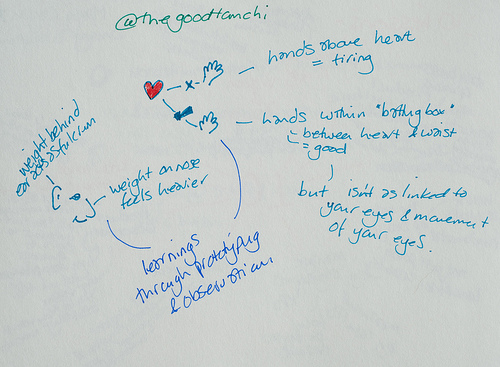 @thegoodtamchi
hands above heart
= tiring
hands within "batting box"
between heart & waist
= good
but isn't as linked to
your eyes & movement
of your eyes.
weight behind
ear acts as fulcrum
weight on nose
feels heavier
learnings
through prototyping
& observation